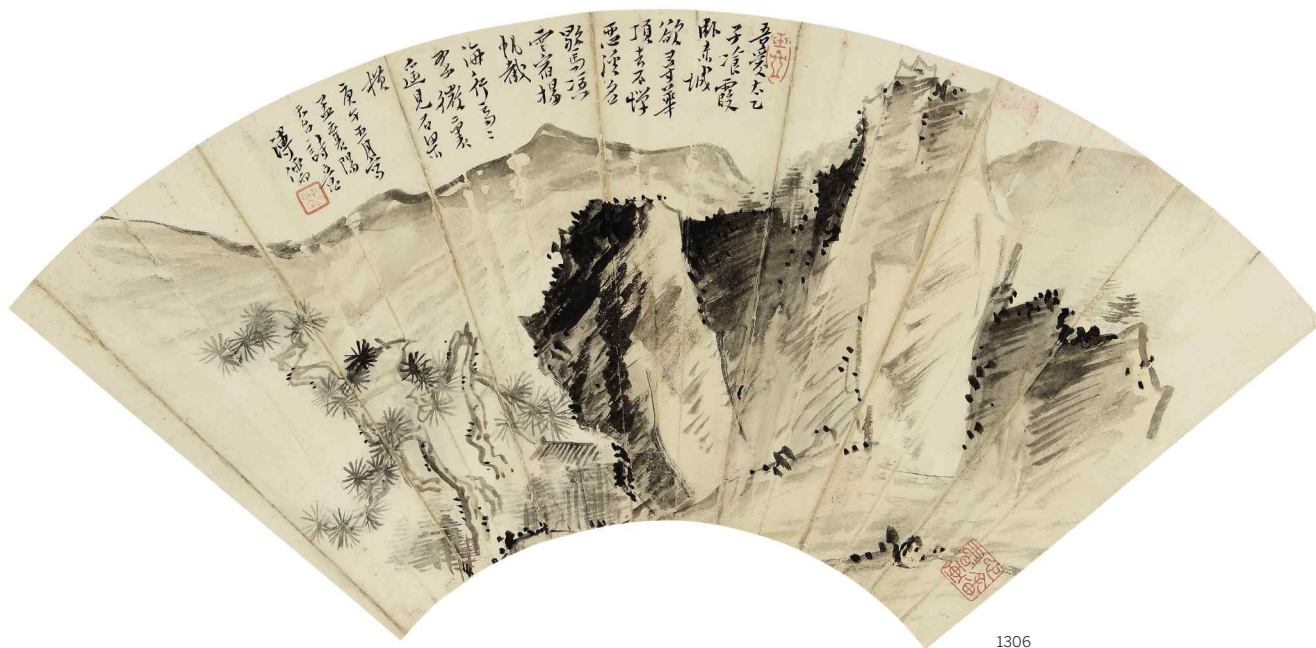 吾愛太乙
子飡霞
臥赤城
欲尋華
頂去不憚
惡溪名
歇馬憑
雲宿揚
帆截
海行高々
翠微裏
遙見石梁
橫
庚午五月寫
孟襄陽
天台詩意
溥儒
1306